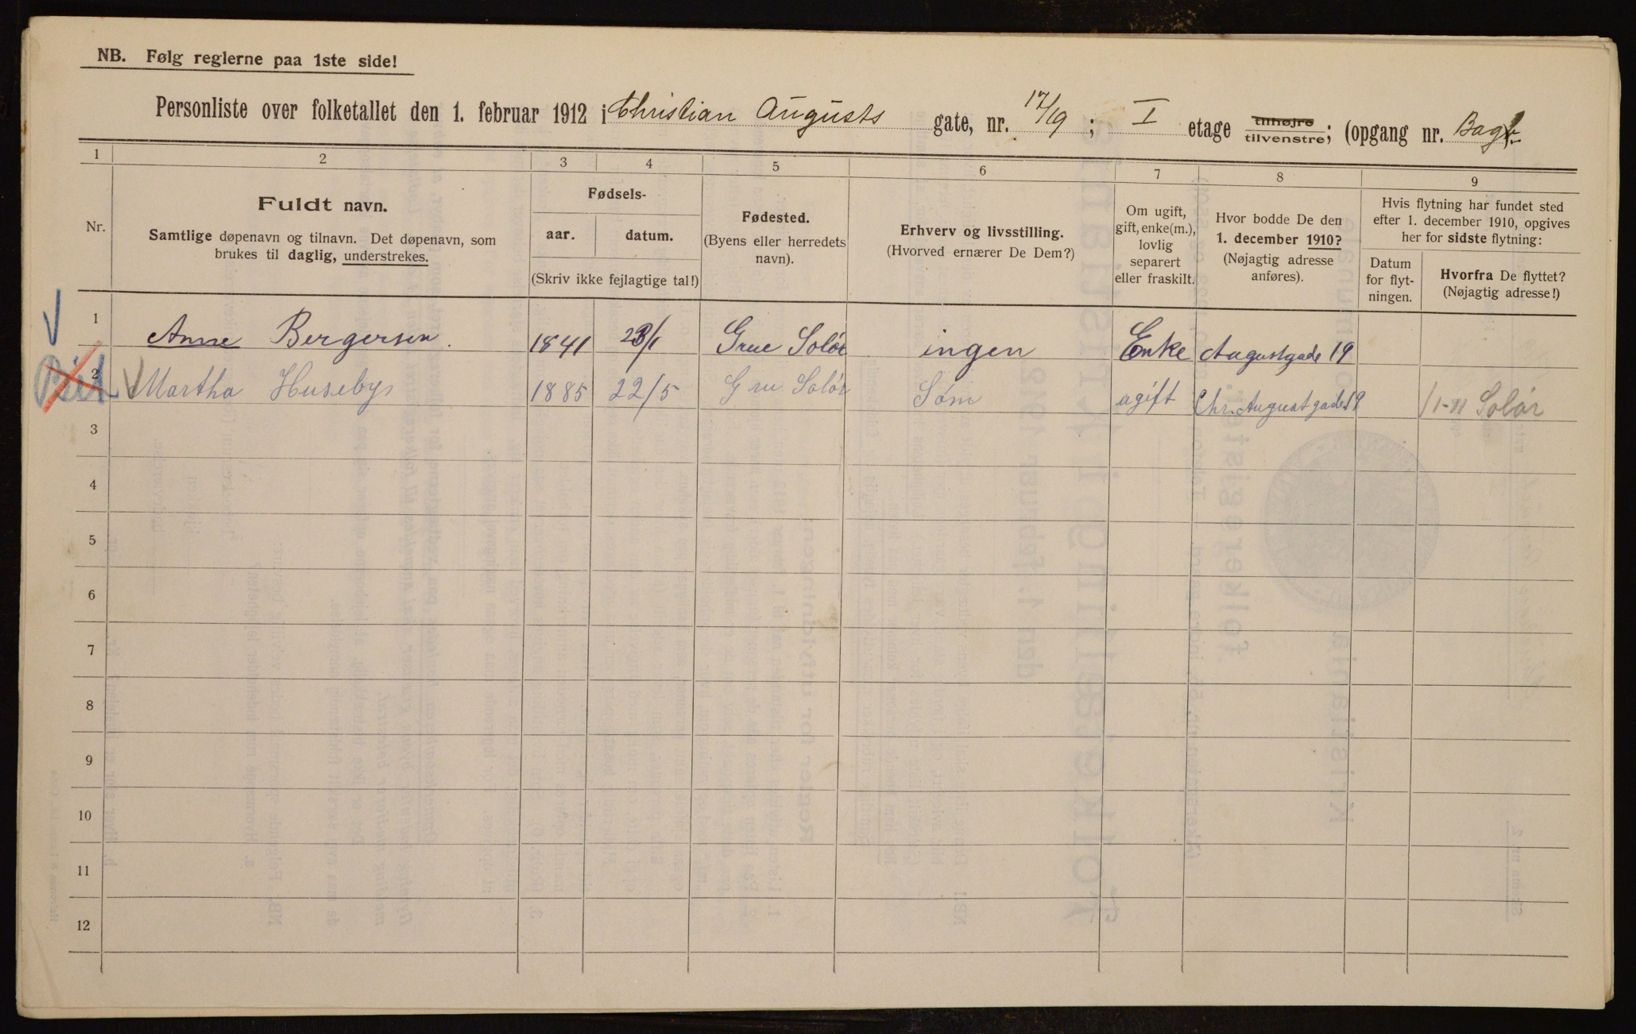 NB. Følg reglerne paa 1ste side!
Personliste over folketallet den 1. februar 1912 i Christian Augusts gate, nr. 17/19 ; I etage tilhøjre tilvenstre; (opgang nr. Bagb.
1 2 3 4 5 6 7 8 9
Nr.
Fuldt navn.
Samtlige døpenavn og tilnavn. Det døpenavn, som
brukes til daglig, understrekes.
Fødsels-
aar. datum.
(Skriv ikke fejlagtige tal!)
Fødested.
(Byens eller herredets
navn).
Erhverv og livsstilling.
(Hvorved ernærer De Dem?)
Om ugift,
gift, enke(m.),
lovlig
separert
eller fraskilt.
Hvor bodde De den
1. december 1910?
(Nøjagtig adresse
anføres).
Hvis flytning har fundet sted
efter 1. december 1910, opgives
her for sidste flytning:
Datum
for flyt-
ningen.
Hvorfra De flyttet?
(Nøjagtig adresse!)
1 Anne Bergersen. 1841 23/1 Grue Solør ingen Enke Augustgade 19
2 Martha Huseby 1885 22/5 Gru Solør Søm ugift Chr. Augustgade 19 1/1-11 Solør
3
4
5
6
7
8
9
10
11
12